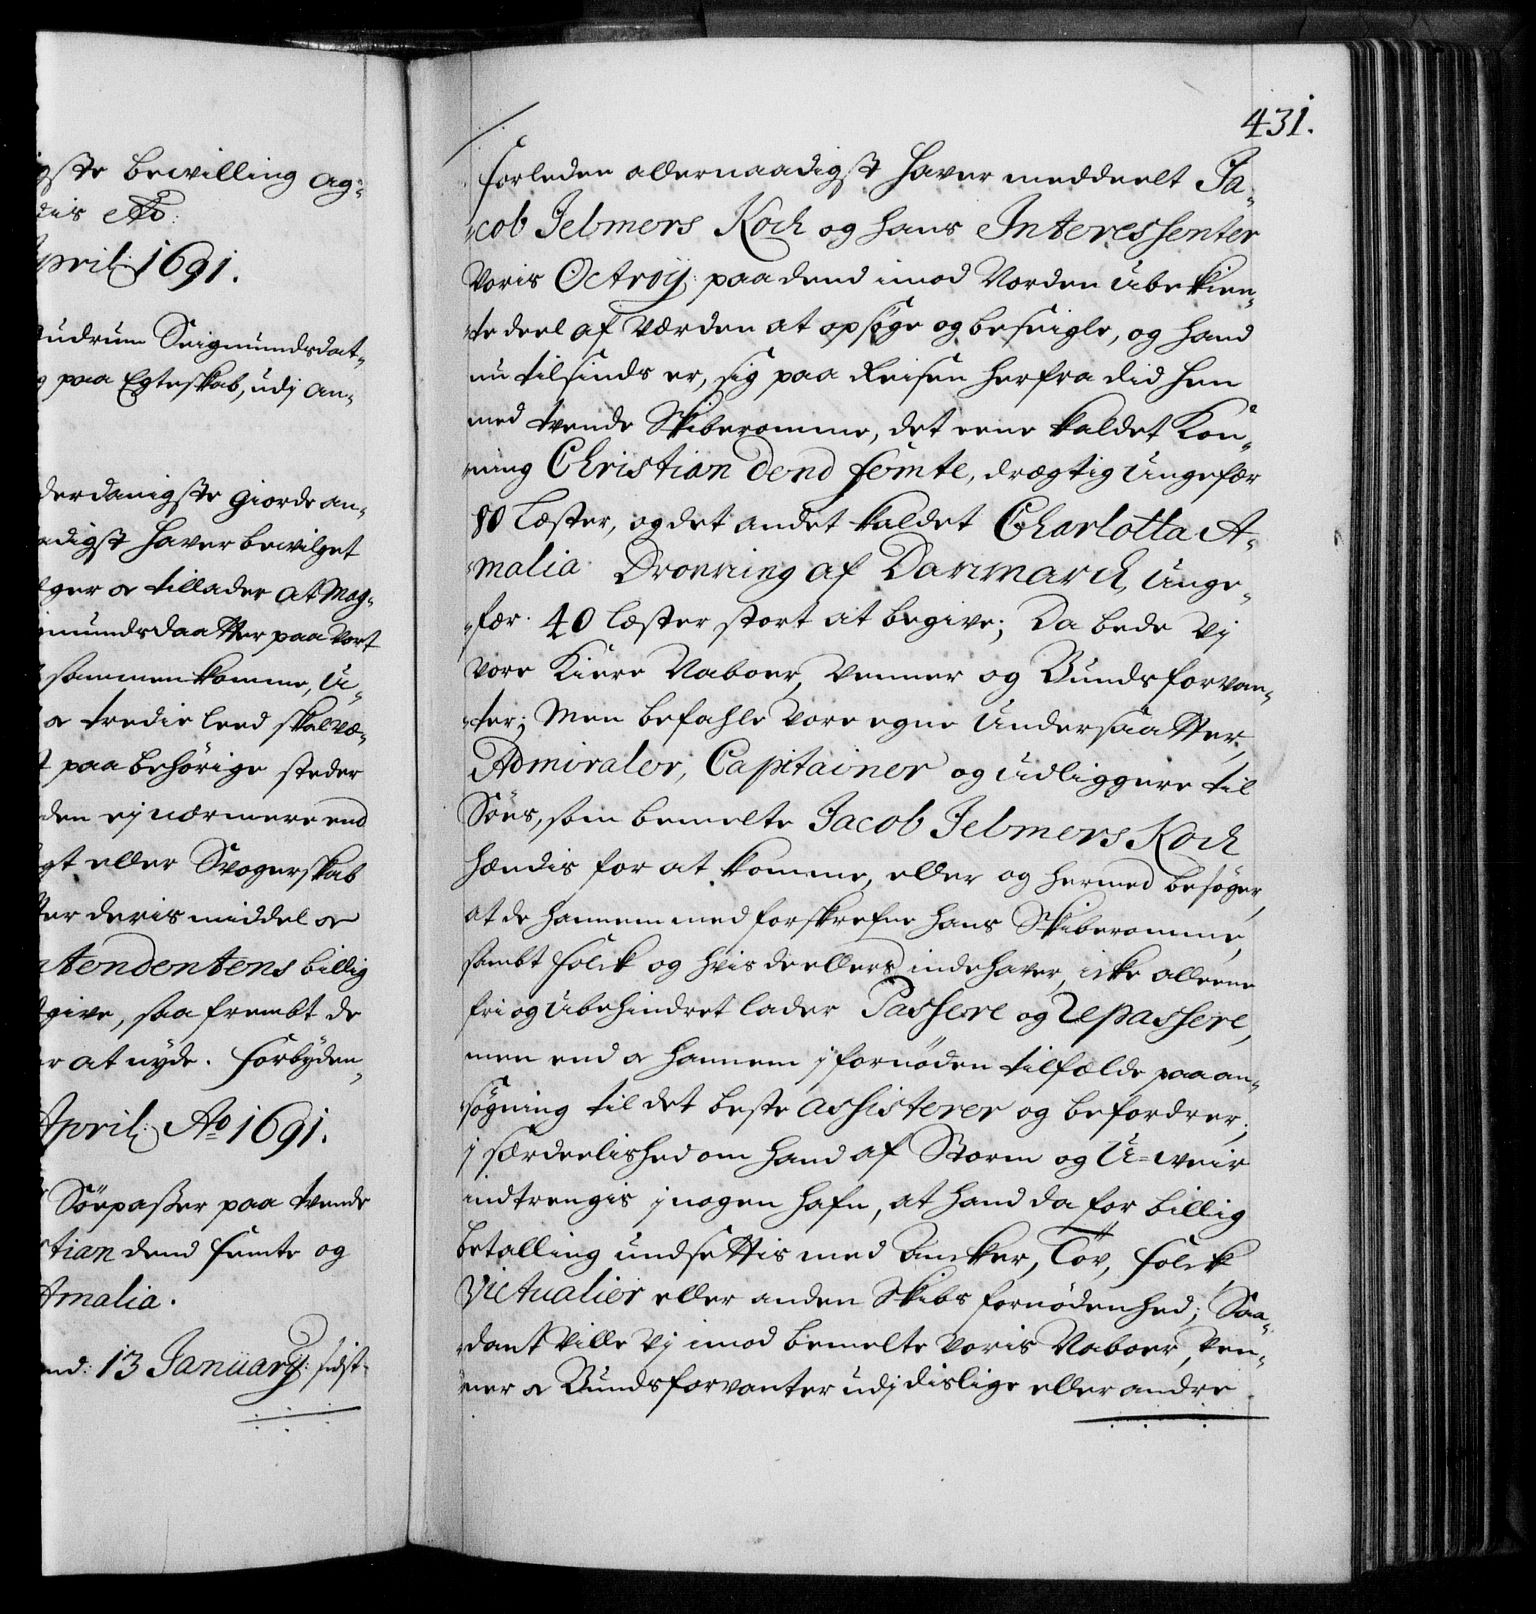 gste bewilling ag¬
dis Ao:
April 1691.
Gudrum Sigmundsdat¬
g paa Egteskab, udj an¬
derdanigste giorde an¬
adigst hafver bewilget
lger oc tillader at Mag¬
gmundsdaatter paa vort
sammenkomme, u¬
oc tredie leed skal væ¬
t paa behörige steder
den ej nærmere end
gt eller Svogerskab
ter deris middel oc
ntendentens billig
dgive, saa frembt de
er at nyde. Forbyden¬
April: Ao 1691.
Söepasser paa tvende
stian dend femte og
Amalia.
nd: 13 Januarij: sidst¬
431.
forleden allernaadigst hafver meddeelt Ja¬
cob Jelmers Koch og hans Interessenter
Voris Octroij: paa dend imod Norden ubekien¬
te deel af Verden at opsöge og beseigle, og hand
nu tilsinds er, sig paa Reisen herfra did hen
med tvende Skiberomme, det eene kaldet Kon¬
ning Christian dend femte, drægtig ungefær
80 Læster, og det andet kaldet Charlotta A¬
malia Dronning af Danmarck, unge¬
fær 40 læster stort at begive; Da bede Vj
vore Kiere Naboer, Venner og Bundsforvan¬
ter; Men befahle vore egne Undersaatter,
Admiraler, Capitainer og udliggere til
Söes, som bemelte Jacob Jelmers Koch
hændis for at komme, eller og hermed besöger,
at de hannem med forskrefne hans Skiberomme,
sambt folck og hvis de ellers indehaver, icke alleene
fri og ubehindret lader Passere og Repassere,
men end oc hannem j fornöden tilfælde paa an¬
sögning til det beste assisterer og befordrer,
j særdeelished om hand af Storm og U-weir
indtrengis j nogen hafn, at hand da for billig
betalling undsettis med Ancker, Töv, folck
Victualier eller anden Skibs fornödenhed; Saa¬
dant ville Vj imod bemelte voris Naboer, Ven¬
ner oc Bundsforvanter udj dislige eller andre